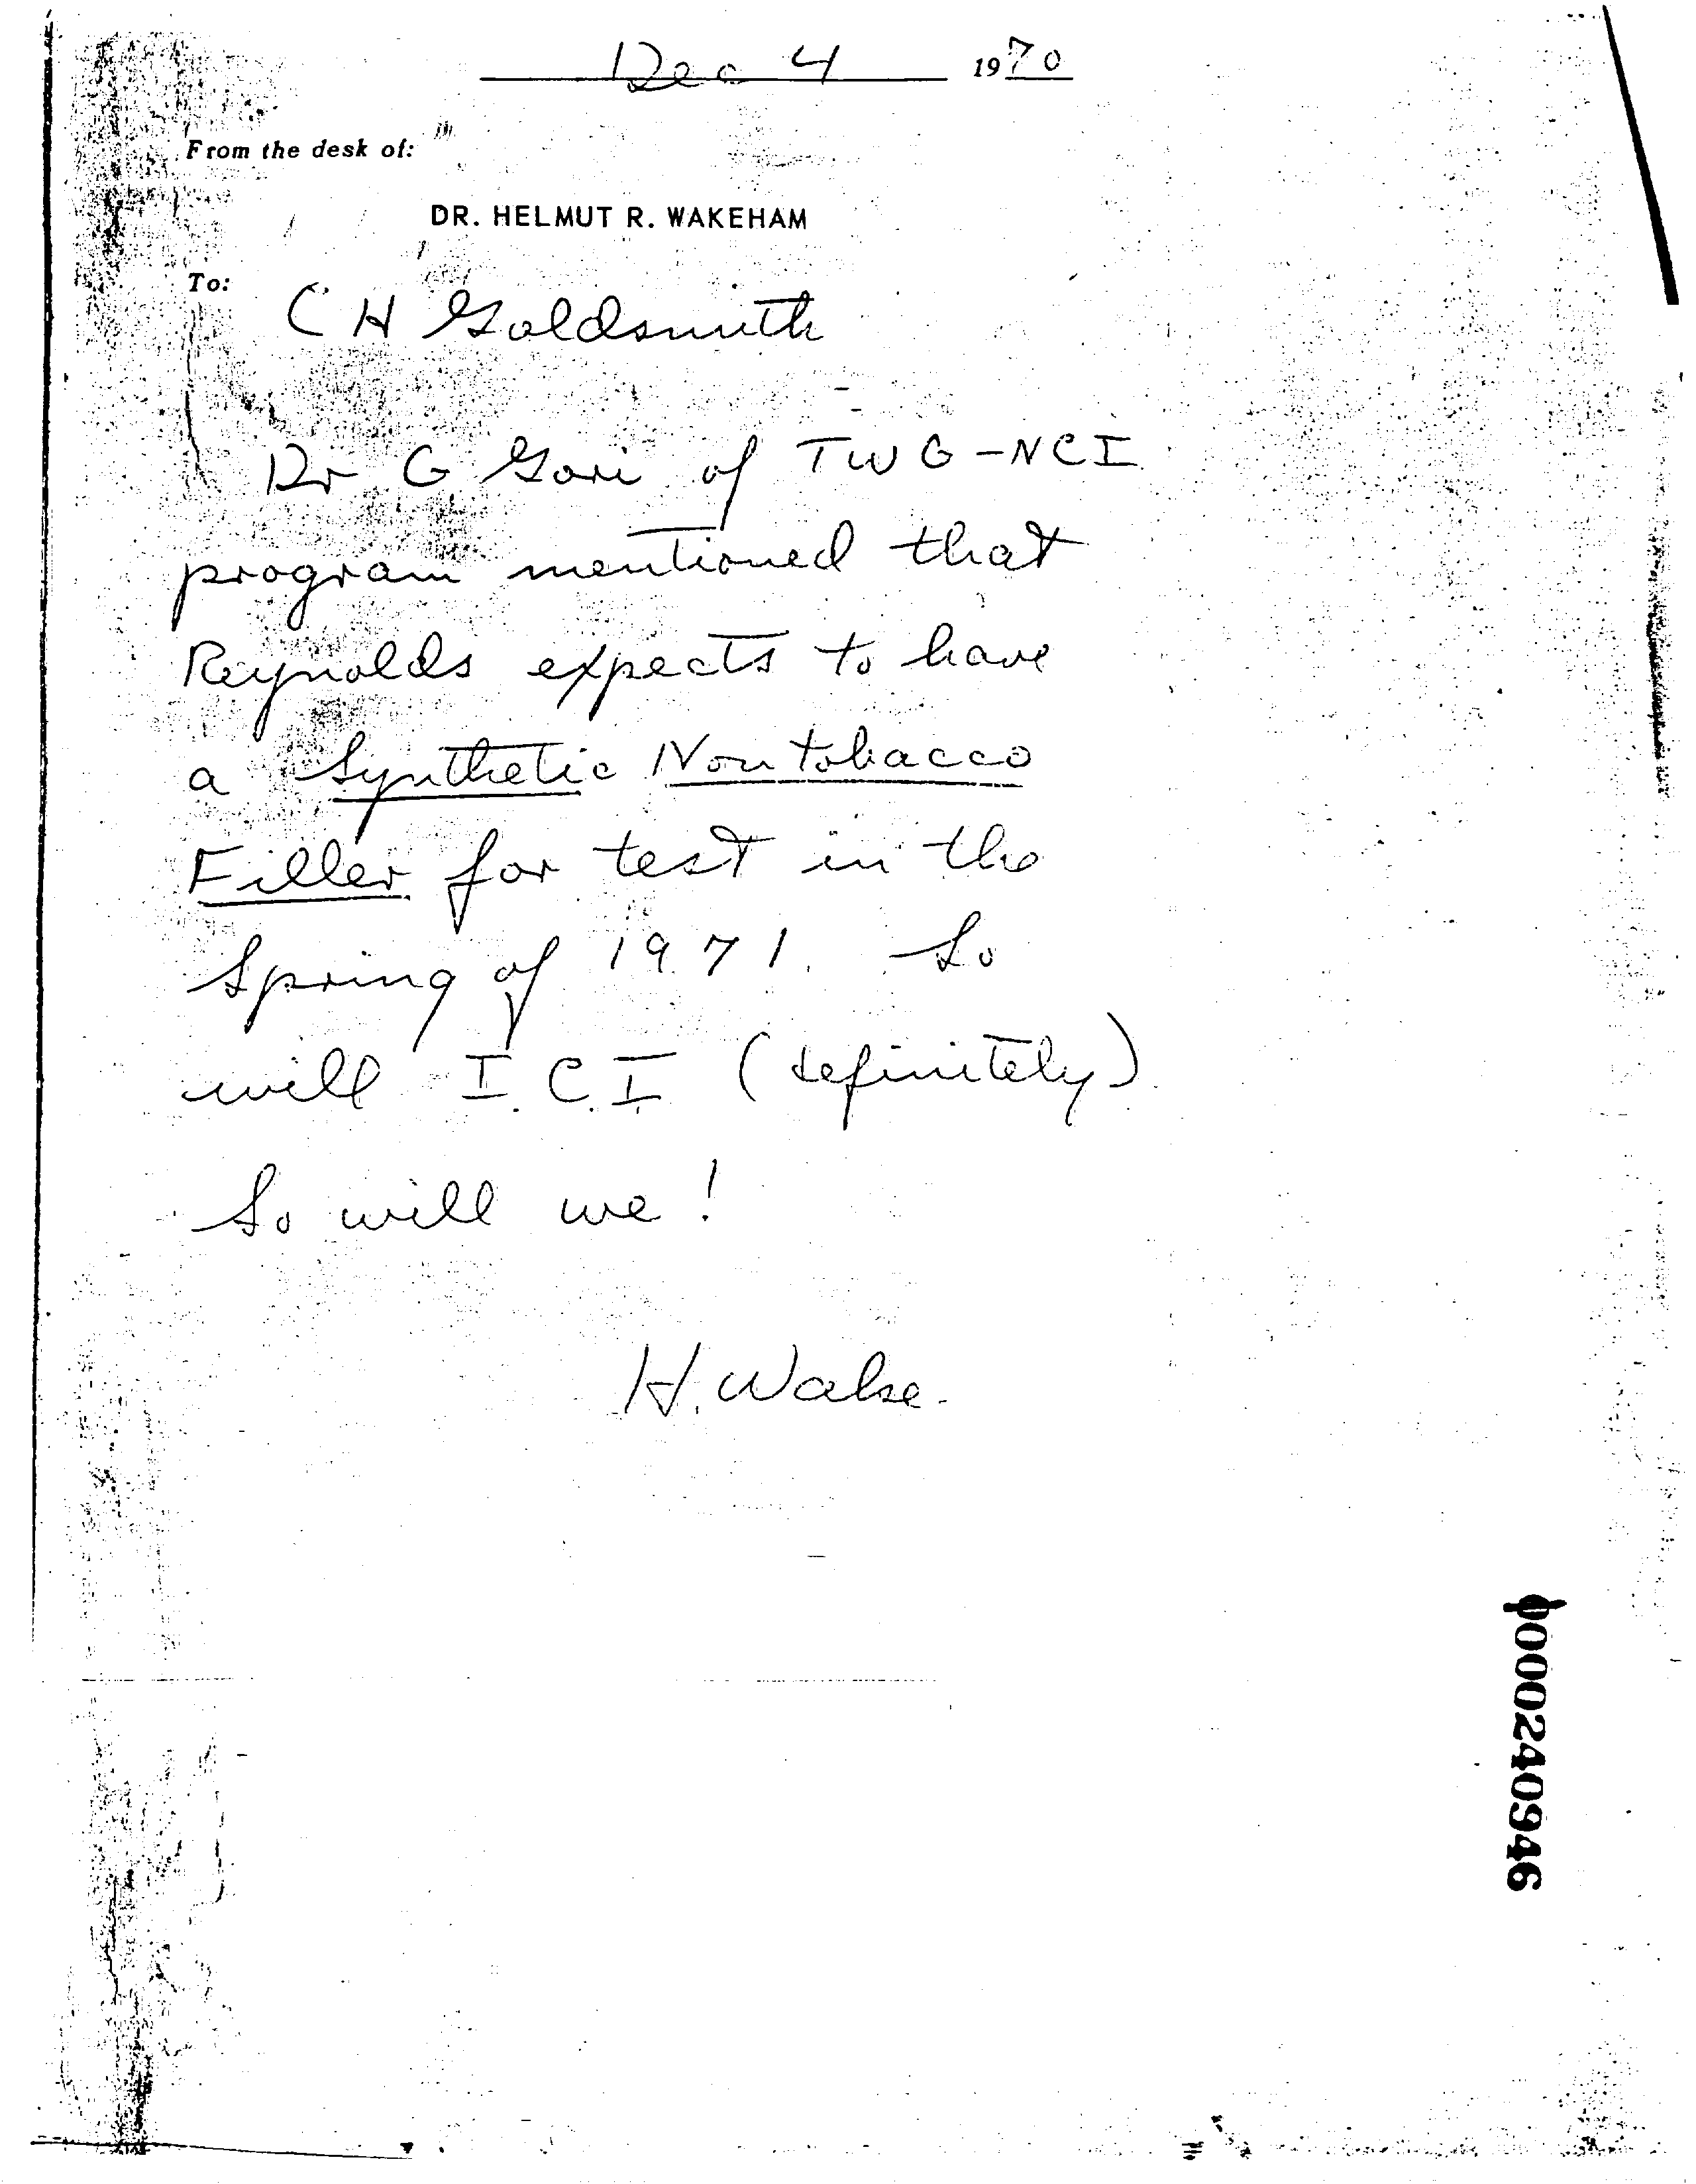 Dec 4 1970
From the desk of:
DR. HELMUT R. WAKEHAM
To:
C H Goldsmith
Dr G Gori of TWG-NCI
program mentioned that
Reynolds expects to have
a Synthetic Nontobacco
Filler for test in the
Spring of 1971. So
will I.C.I (definitely)
So will we!
H. Wake.
0000240946